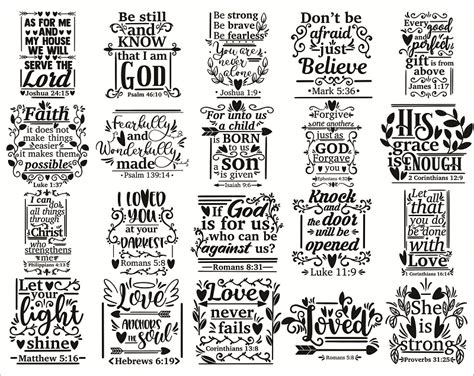 AS FOR ME
AND
MY HOUSE
WE WILL
SERVE THE
Lord
Joshua 24:15
Be still
and
KNOW
that I am
GOD
Psalm 46:10
Be strong
Be brave
Be fearless
You are
never
alone
Joshua 1:9
Don't be
afraid
just
Believe
Mark 5:36
Every
good
and
perfect
gift is
from above
James 1:17
Faith
it does not
make things
easier
it makes
them
possible
Luke 1:37
Fearfully
and
Wonderfully
made
Psalm 139:14
For unto us
a child
is BORN
to us a
SON
is given
Isaiah 9:6
Forgive
one another
just as
GOD
Forgave
you
Ephesians 4:32
HIS
grace is
ENOUGH
2 Corinthians 12:9
I can do
all things
through
Christ
who
strengthens
me
Philippians 4:13
I LOVED
YOU
at your
DARKEST
Romans 5:8
If God
is for us
who can be
against us?
Romans 8:31
Knock
and
the door
will be
opened
Luke 11:9
Let all
that you
do, be
done
with
Love
1 Corinthians 16:14
Let
your
light
shine
Matthew 5:16
Love
ANCHORS
the
soul
Hebrews 6:19
Love
never
fails
1 Corinthians 13:8
Loved
Romans 5:8
She is
strong
Proverbs 31:25